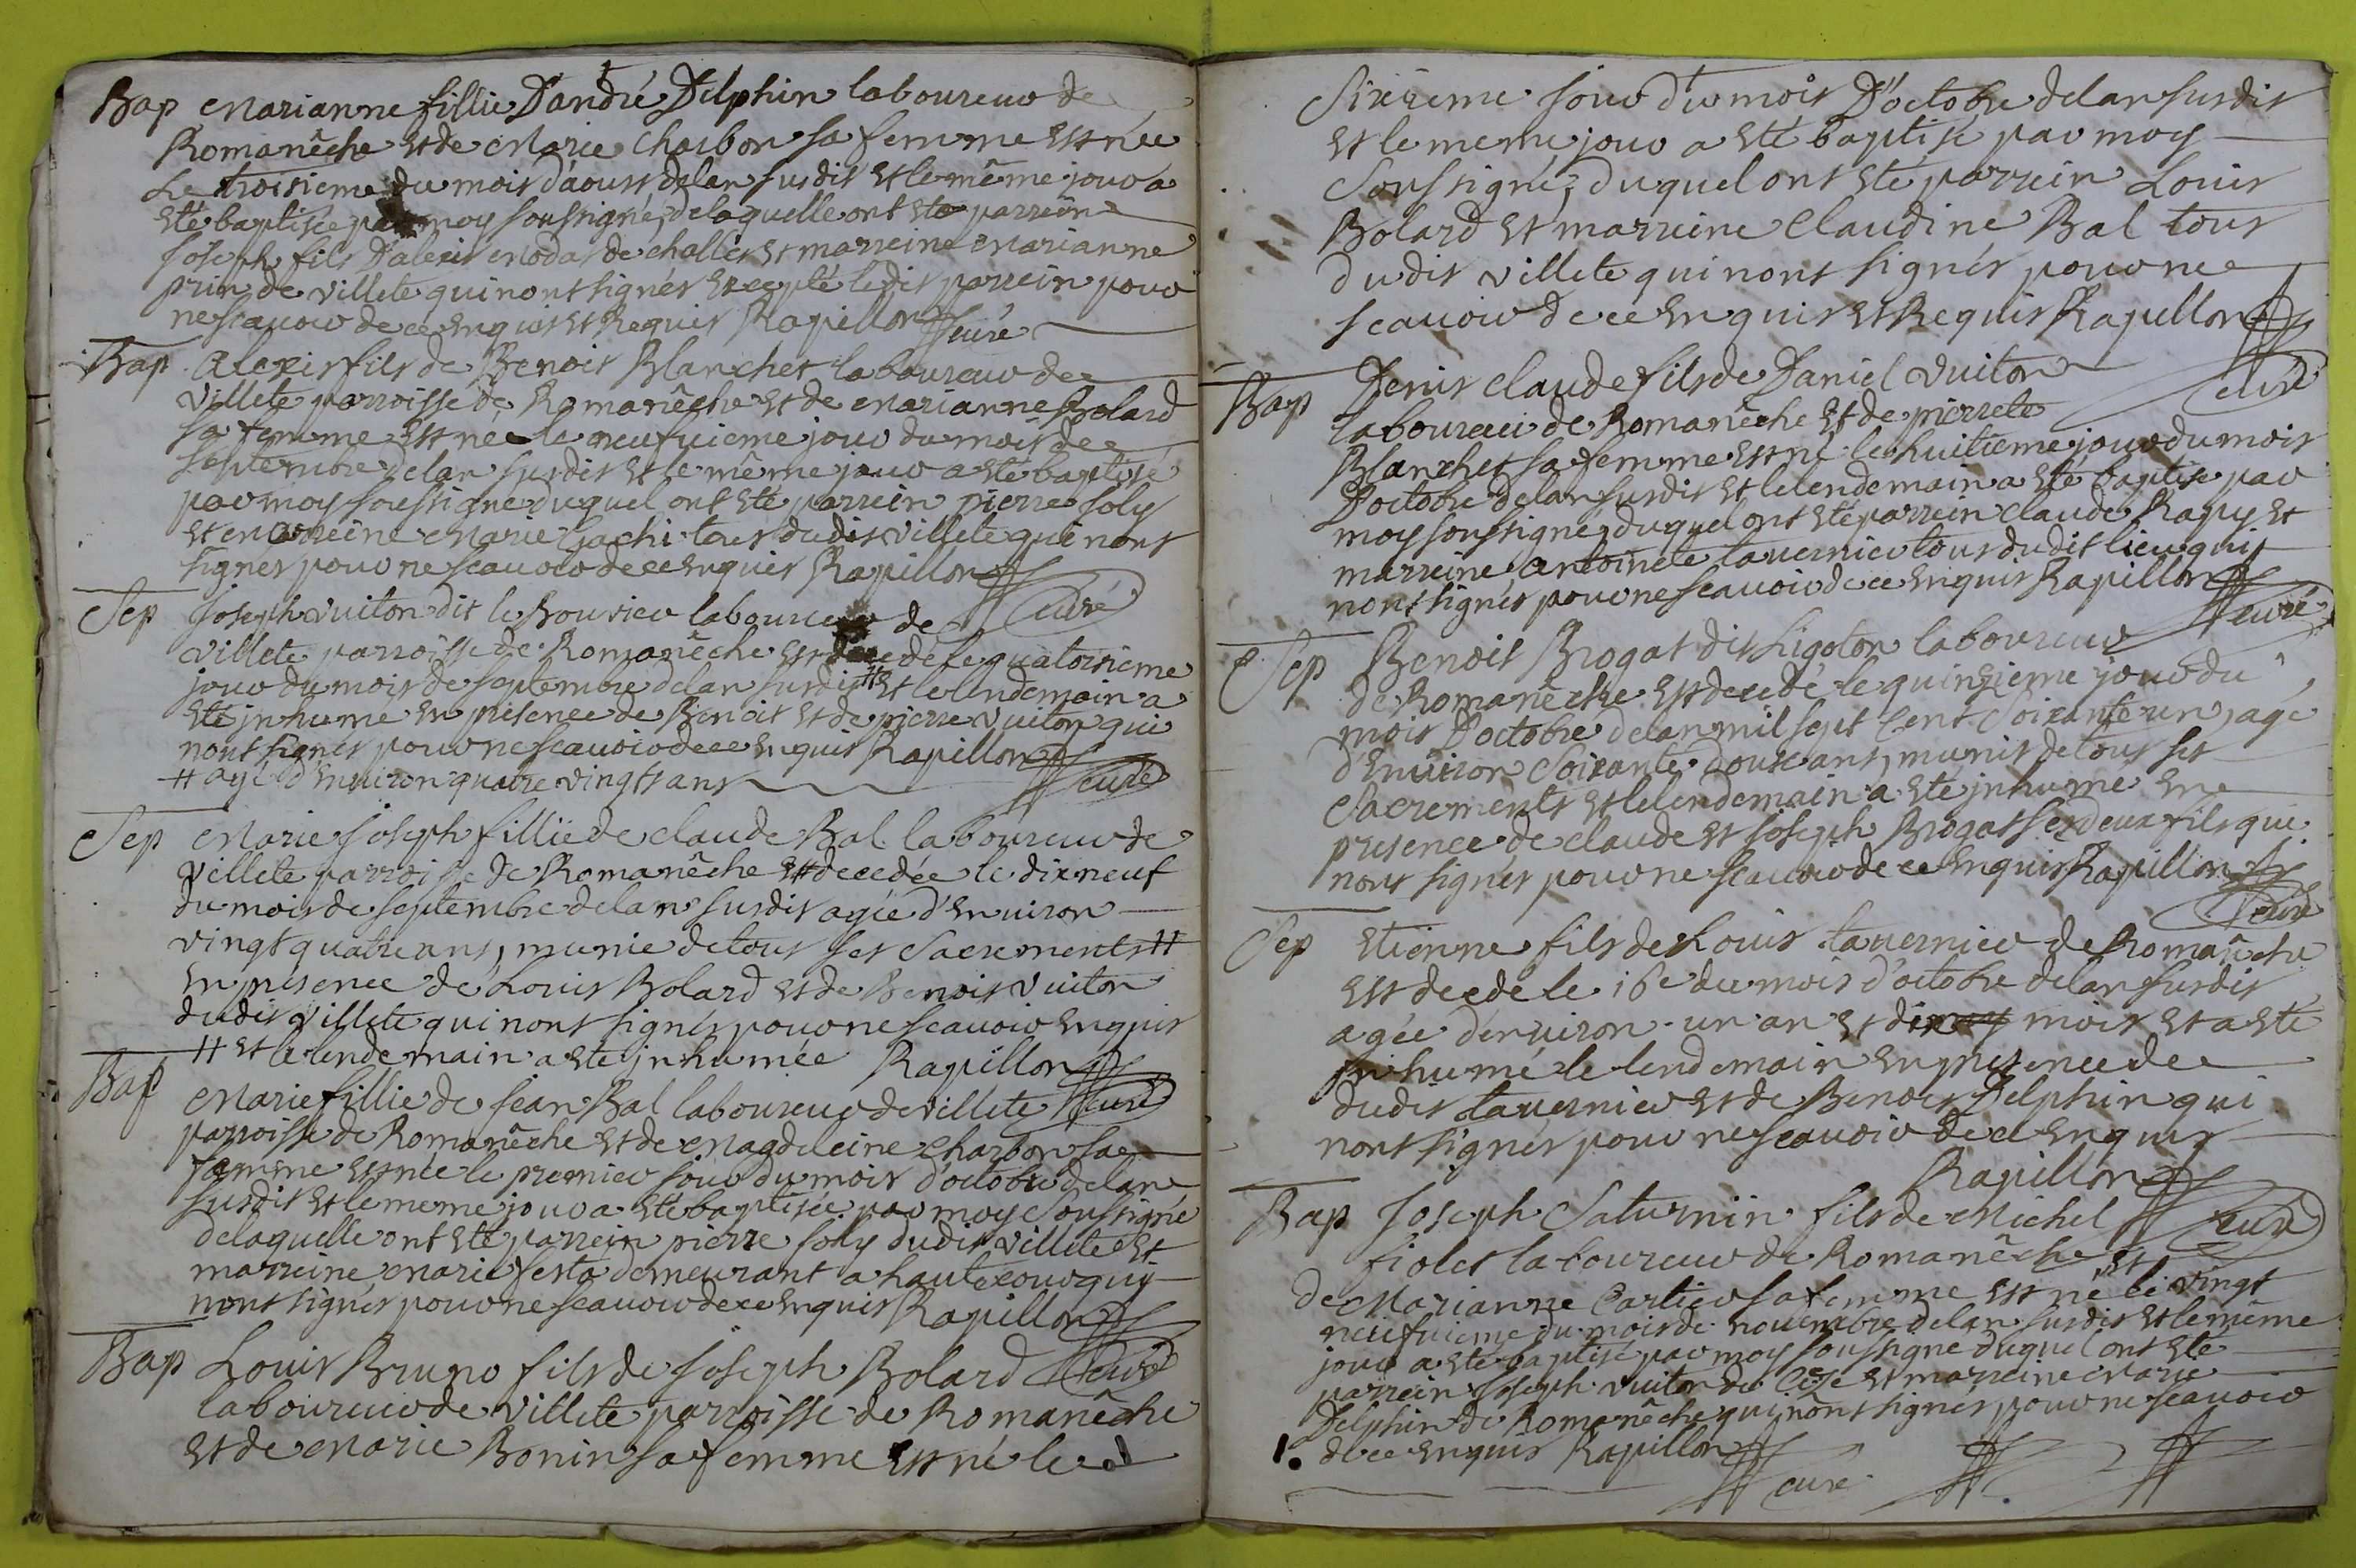 Bap Marianne fillie D'andré Delphin laboureur de
Romanêche et de Marie Charbon sa femme est née
Le troisieme du mois d'aoust delan susdit et le même jour a
eté baptisée par moy soussigné, de laquelle ont eté parrein
Joseph fils D'alexis Modas de challes et marreine Marianne
prin de villete qui n'ont signés excepté ledit parrein pour
ne scauoir de ce enquis et Requis Rapillon curé
Bap Alexis fils de Benoit Blanchet laboureur de
villete parroisse de Romanêche et de Marianne Bolard
sa femme est né le neufuieme jour du mois de
septembre delan susdit et le même jour a eté baptisé
par moy soussigné duquel ont eté parrein pierre Joly
et marreine Marie Gachi tous dudit villete qui nont
signés pour ne scauoir de ce enquis Rapillon
curé
Sep Joseph vuiton dit le Bouvier laboureur de
villete parroisse de Romanêche est decedé le quatorsieme
jour du mois de septembre delan susdit # et le lendemain a
eté jnhumé en présence de Benoit et de pierre vuiton qui
nont signés pour ne scauoir de ce enquis Rapillon
# agé d'enuiron quatre vingts ans curé
Sep Marie Joseph fillie de claude Bal laboureur de
villete parroisse de Romanêche est decedée le dixneuf
du mois de septembre delan susdit agée d'enuiron
vingt quatre ans, munie de tous ses Sacrements #
en présence de Louis Bolard et de Benoit vuiton
dudit villete qui nont signés pour ne scauoir enquis
# et le lendemain a eté jnhumée Rapillon
curé
Bap Marie fillie de jean Bal laboureur de villete
parroisse de Romanêche et de Magdeleine Charbon sa
femme est née le premier jour du mois d'octobre delan
susdit et le meme jour a eté baptisée par moy Soussigné
delaquelle ont eté parrein pierre Joly dudit villete et
marreine Marie festa demeurant a hautecour quy
nont signés pour ne scauoir de ce enquis Rapillon
curé
Bap Louis Bruno fils de Joseph Bolard
laboureur de villete parroisse de Romanêche
et de Marie Bonin sa femme est né le
Sixieme jour du mois D'octobre delan susdit
et le meme jour a eté baptisé par moy
Soussigné, duquel ont eté parrein Louis
Bolard et marreine Claudine Bal tous
dudit villete qui nont signés pour ne
scauoir de ce enquis et Requis Rapillon
curé
Bap Denis claude fils de Daniel vuiton
laboureur de Romanêche et de pierrete
Blanchet sa femme est né le huitieme jour du mois
D'octobre delan susdit et le lendemain a eté baptisé par
moy soussigné, duquel ont eté parrein claude Rapy et
marreine Antoinete tauernier tous dudit lieu quy
nont signés pour ne scauoir de ce enquis Rapillon
curé
Sep Benoit Brogat dit Ligoton laboureur
de Romanêche est decedé le quinzieme jour du
mois D'octobre delan mil sept Cent Soixante un, agé
d'enuiron Soixante douze ans, munis de tous ses
Sacrements et le lendemain a eté jnhumé en
presence de claude et Joseph Brogat ses deux fils qui
nont signés pour ne scauoir de ce enquis Rapillon
curé
Sep Etienne fils de Louis tauernier de Romanêche
est decedé le 16e du mois d'octobre delan susdit
agée d'enuiron un an et dix mois et a eté
jnhumé le lendemain en presence de
dudit tauernier et de Benoit Delphin qui
nont signés pour ne scauoir de ce enquis
Rapillon
curé
Bap Joseph Saturnin fils de Michel
fiolet laboureur de Romanêche et
de Marianne Cartier sa femme est né le vingt
neufuieme du mois de nouembre delan susdit et le même
jour a eté baptisé par moy soussigné duquel ont eté
parrein Joseph vuiton de et marreine Marie
Delphin de Romanêche qui nont signés pour ne scauoir
de ce enquis Rapillon
curé